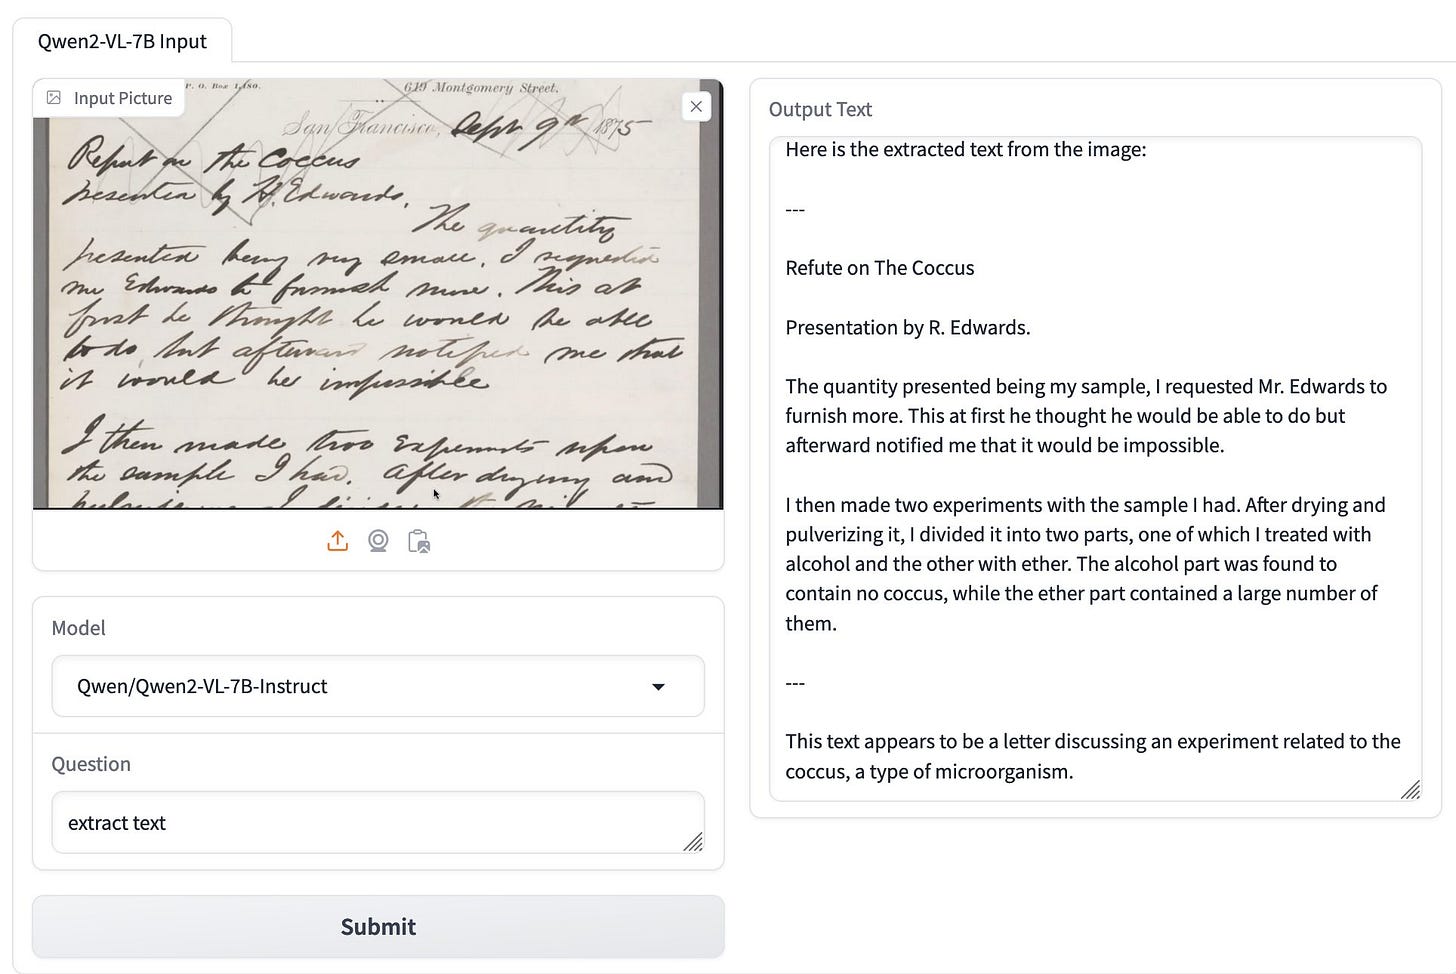 Qwen2-VL-7B Input
Input Picture
P. O. Box 1,480.
619 Montgomery Street.
San Francisco, Sept 9th 1875
Report on the Coccus
presented by H. Edwards.
The quantity
presented being very small, I requested
Mr Edwards to furnish more. This at
first he thought he would be able
to do, but afterward notified me that
it would be impossible
I then made two Experiments upon
the sample I had. After drying and
Model
Qwen/Qwen2-VL-7B-Instruct
Question
extract text
Submit
Output Text
Here is the extracted text from the image:
---
Refute on The Coccus
Presentation by R. Edwards.
The quantity presented being my sample, I requested Mr. Edwards to
furnish more. This at first he thought he would be able to do but
afterward notified me that it would be impossible.
I then made two experiments with the sample I had. After drying and
pulverizing it, I divided it into two parts, one of which I treated with
alcohol and the other with ether. The alcohol part was found to
contain no coccus, while the ether part contained a large number of
them.
---
This text appears to be a letter discussing an experiment related to the
coccus, a type of microorganism.